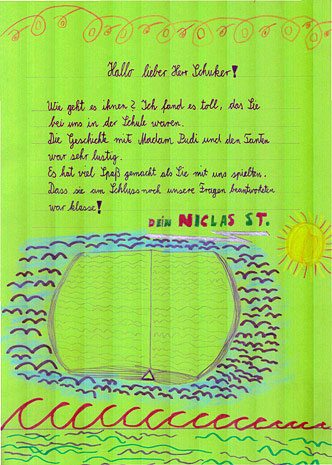 Hallo lieber Herr Schuker!
Wie geht es ihnen? Ich fand es toll, das Sie
bei uns in der Schule waren.
Die Geschichte mit Madam Budi und den Tanten
war sehr lustig.
Es hat viel Spaß gemacht als Sie mit uns spielten.
Dass sie am Schluss noch unsere Fragen beantworteten
war klasse!
DEIN NICLAS ST.